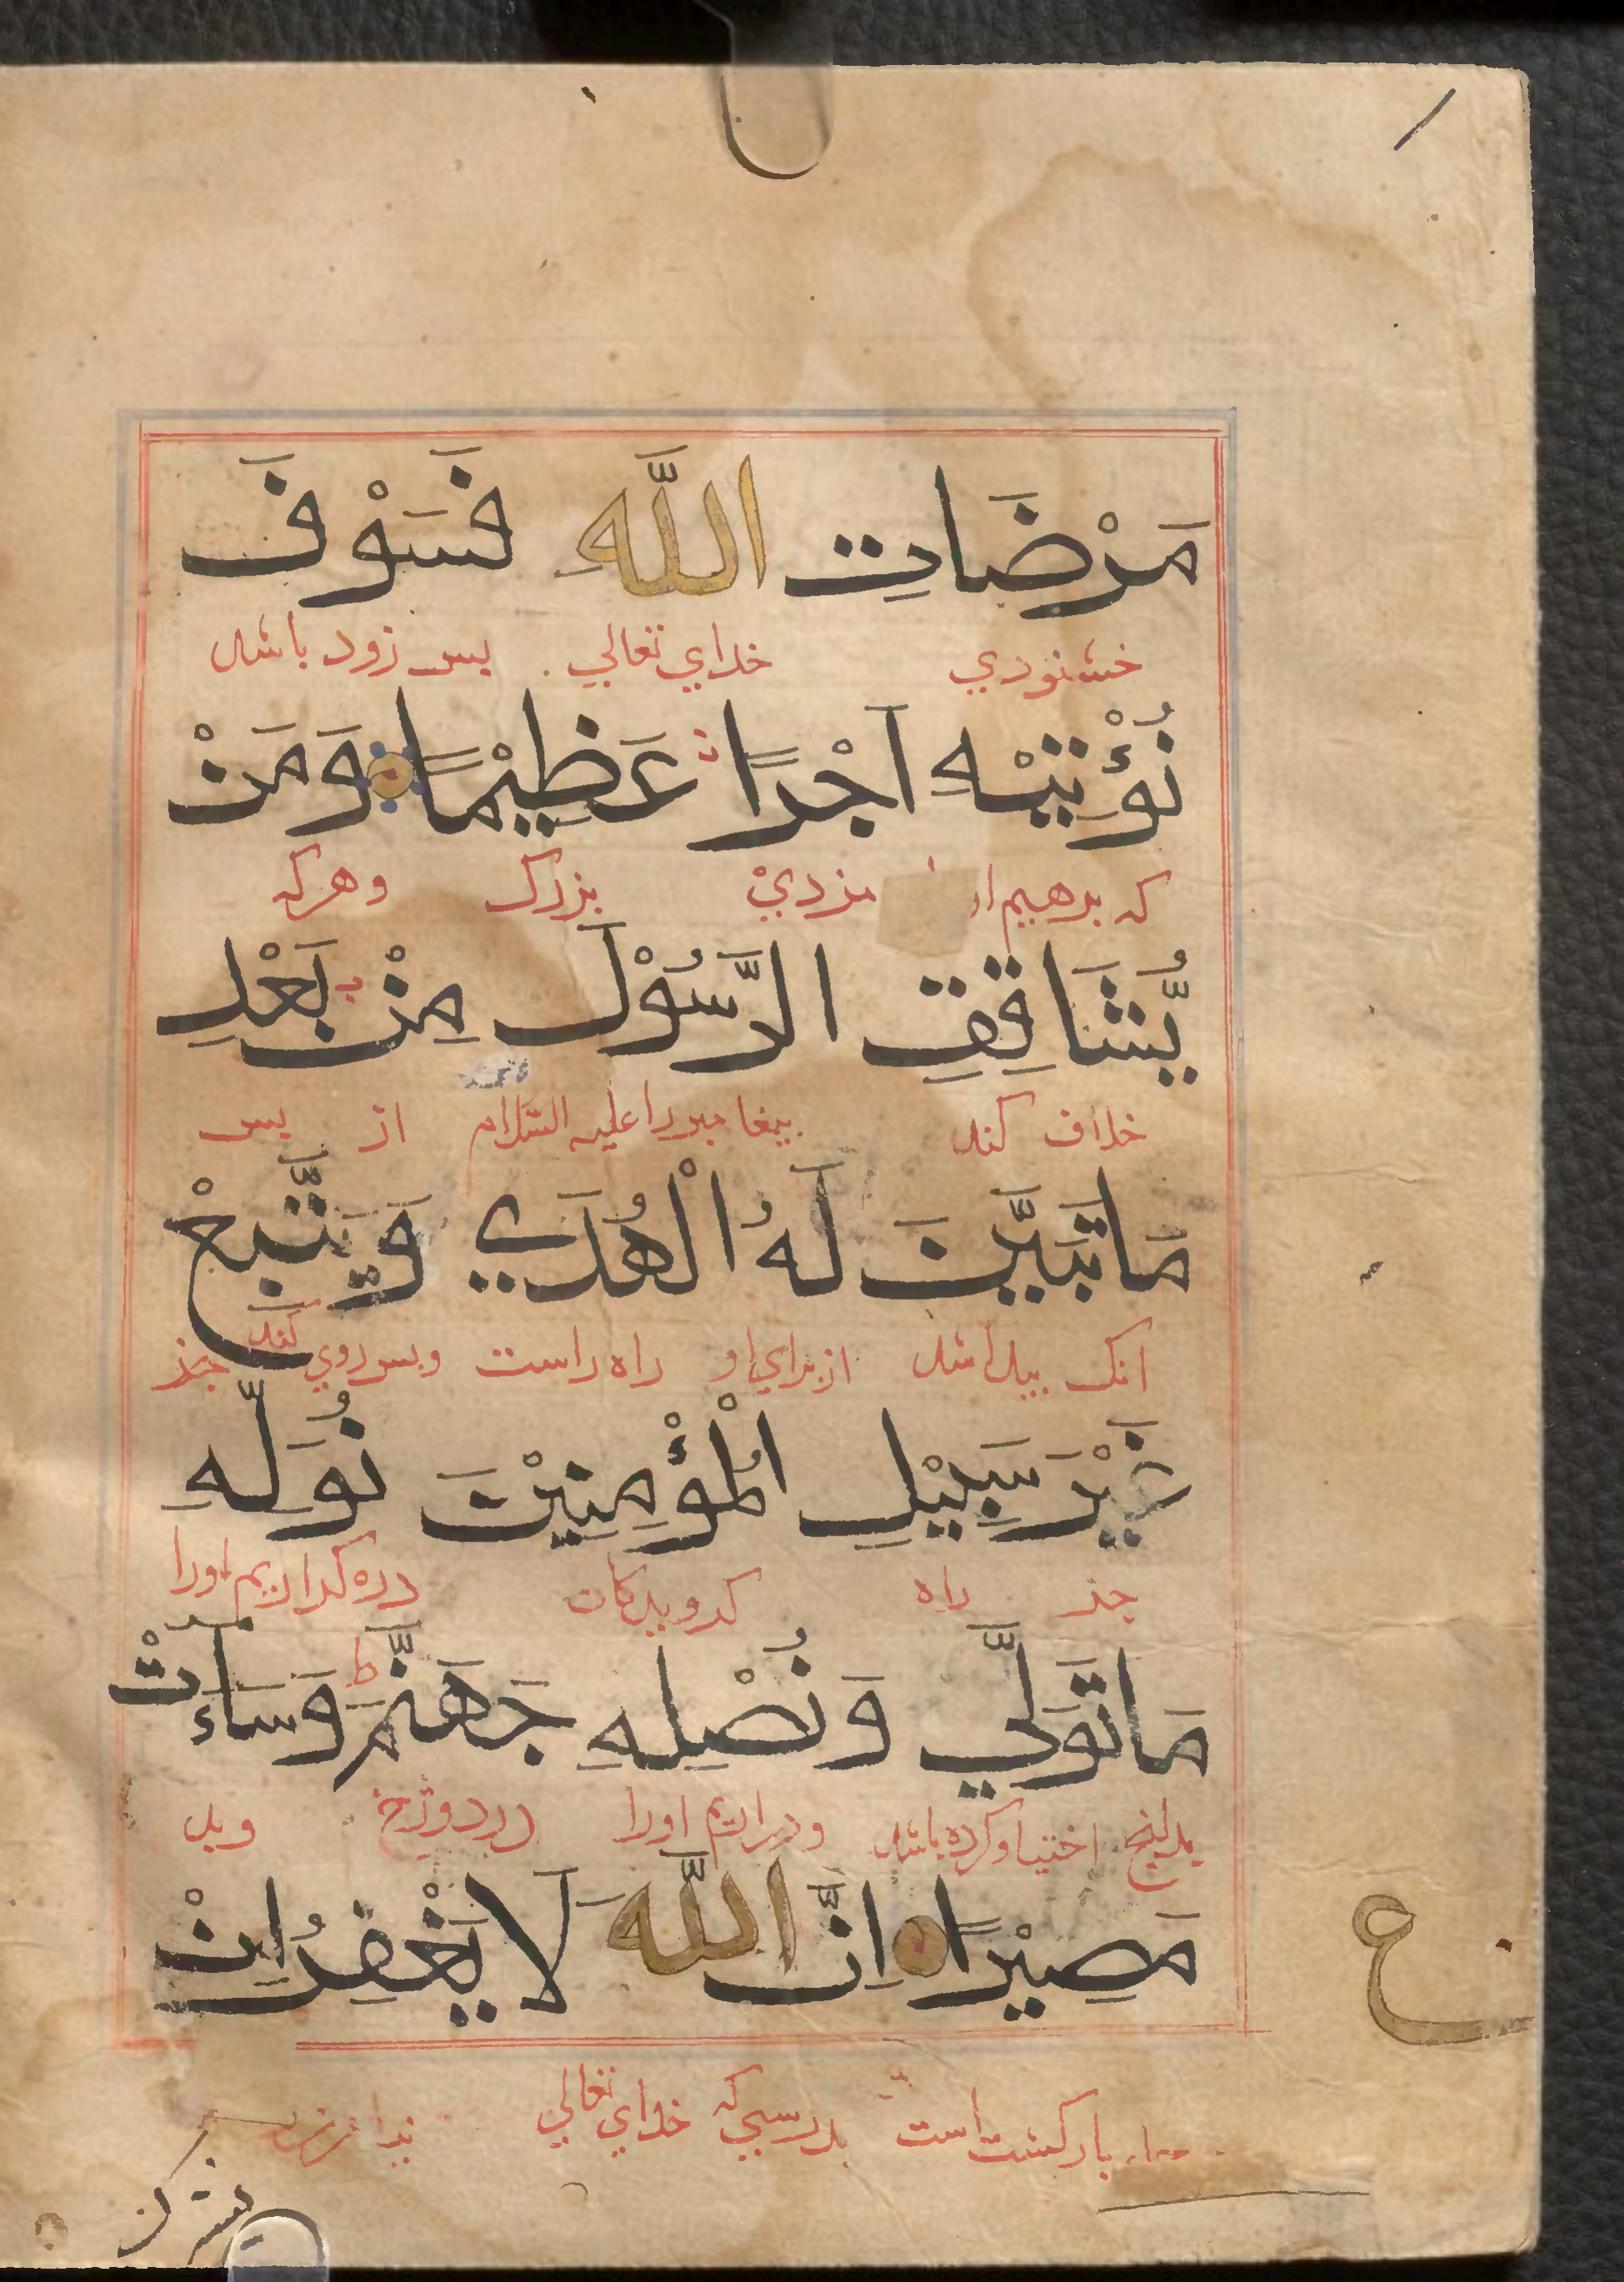 مَرْضَاتِ اللَّهِ فَسَوْفَ
خشنودي خداي تعالي پس زود باشد
نُؤْتِيْهِ اَجْرًا عَظِيْمًا وَمَنْ
كه بدهيم مزدي بزرك وهركه
يُّشَاقِقِ الرَّسُوْلَ مِنْ بَعْدِ
خلاف كند پيغامبر را عليه السّلام از پس
مَا تَبَيَّنَ لَهُ الْهُدَي وَيَتَّبِعْ
انك پيدا شد از براي او راه راست وپس روي كند جز
غَيْرَ سَبِيْلِ الْمُؤْمِنِيْنَ نُوَلِّهِ
جز راه كرويدكان اورا
مَا تَوَلَّي وَنُصْلِهِ جَهَنَّمَ ط وَسَآءَتْ
اختيار كرده باشد ودر اريم اورا در دوزخ وبد
مَصِيْرًا اِنَّ اللَّهَ لَا يَغْفِرُ اِنْ
باز كشت است بدرستي كه خداي تعالي
ع
يشرك